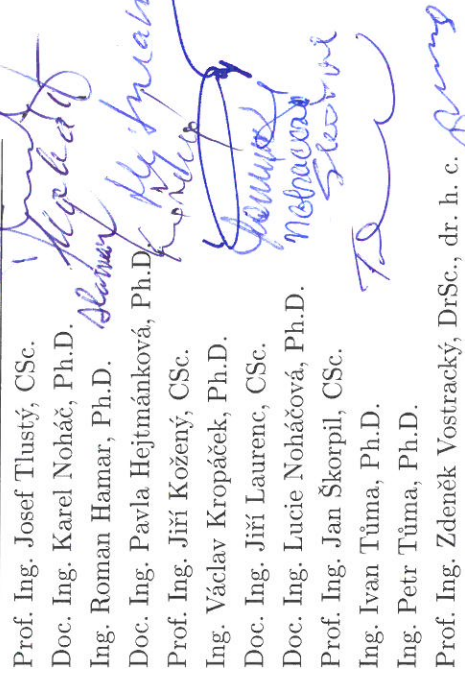 Prof. Ing. Josef Tlustý, CSc.
Doc. Ing. Karel Noháč, Ph.D.
Ing. Roman Hamar, Ph.D.
Doc. Ing. Pavla Hejtmánková, Ph.D.
Prof. Ing. Jiří Kožený, CSc.
Ing. Václav Kropáček, Ph.D.
Doc. Ing. Jiří Laurenc, CSc.
Doc. Ing. Lucie Noháčová, Ph.D.
Prof. Ing. Jan Škorpil, CSc.
Ing. Ivan Tůma, Ph.D.
Ing. Petr Tůma, Ph.D.
Prof. Ing. Zdeněk Vostracký, DrSc., dr. h. c.